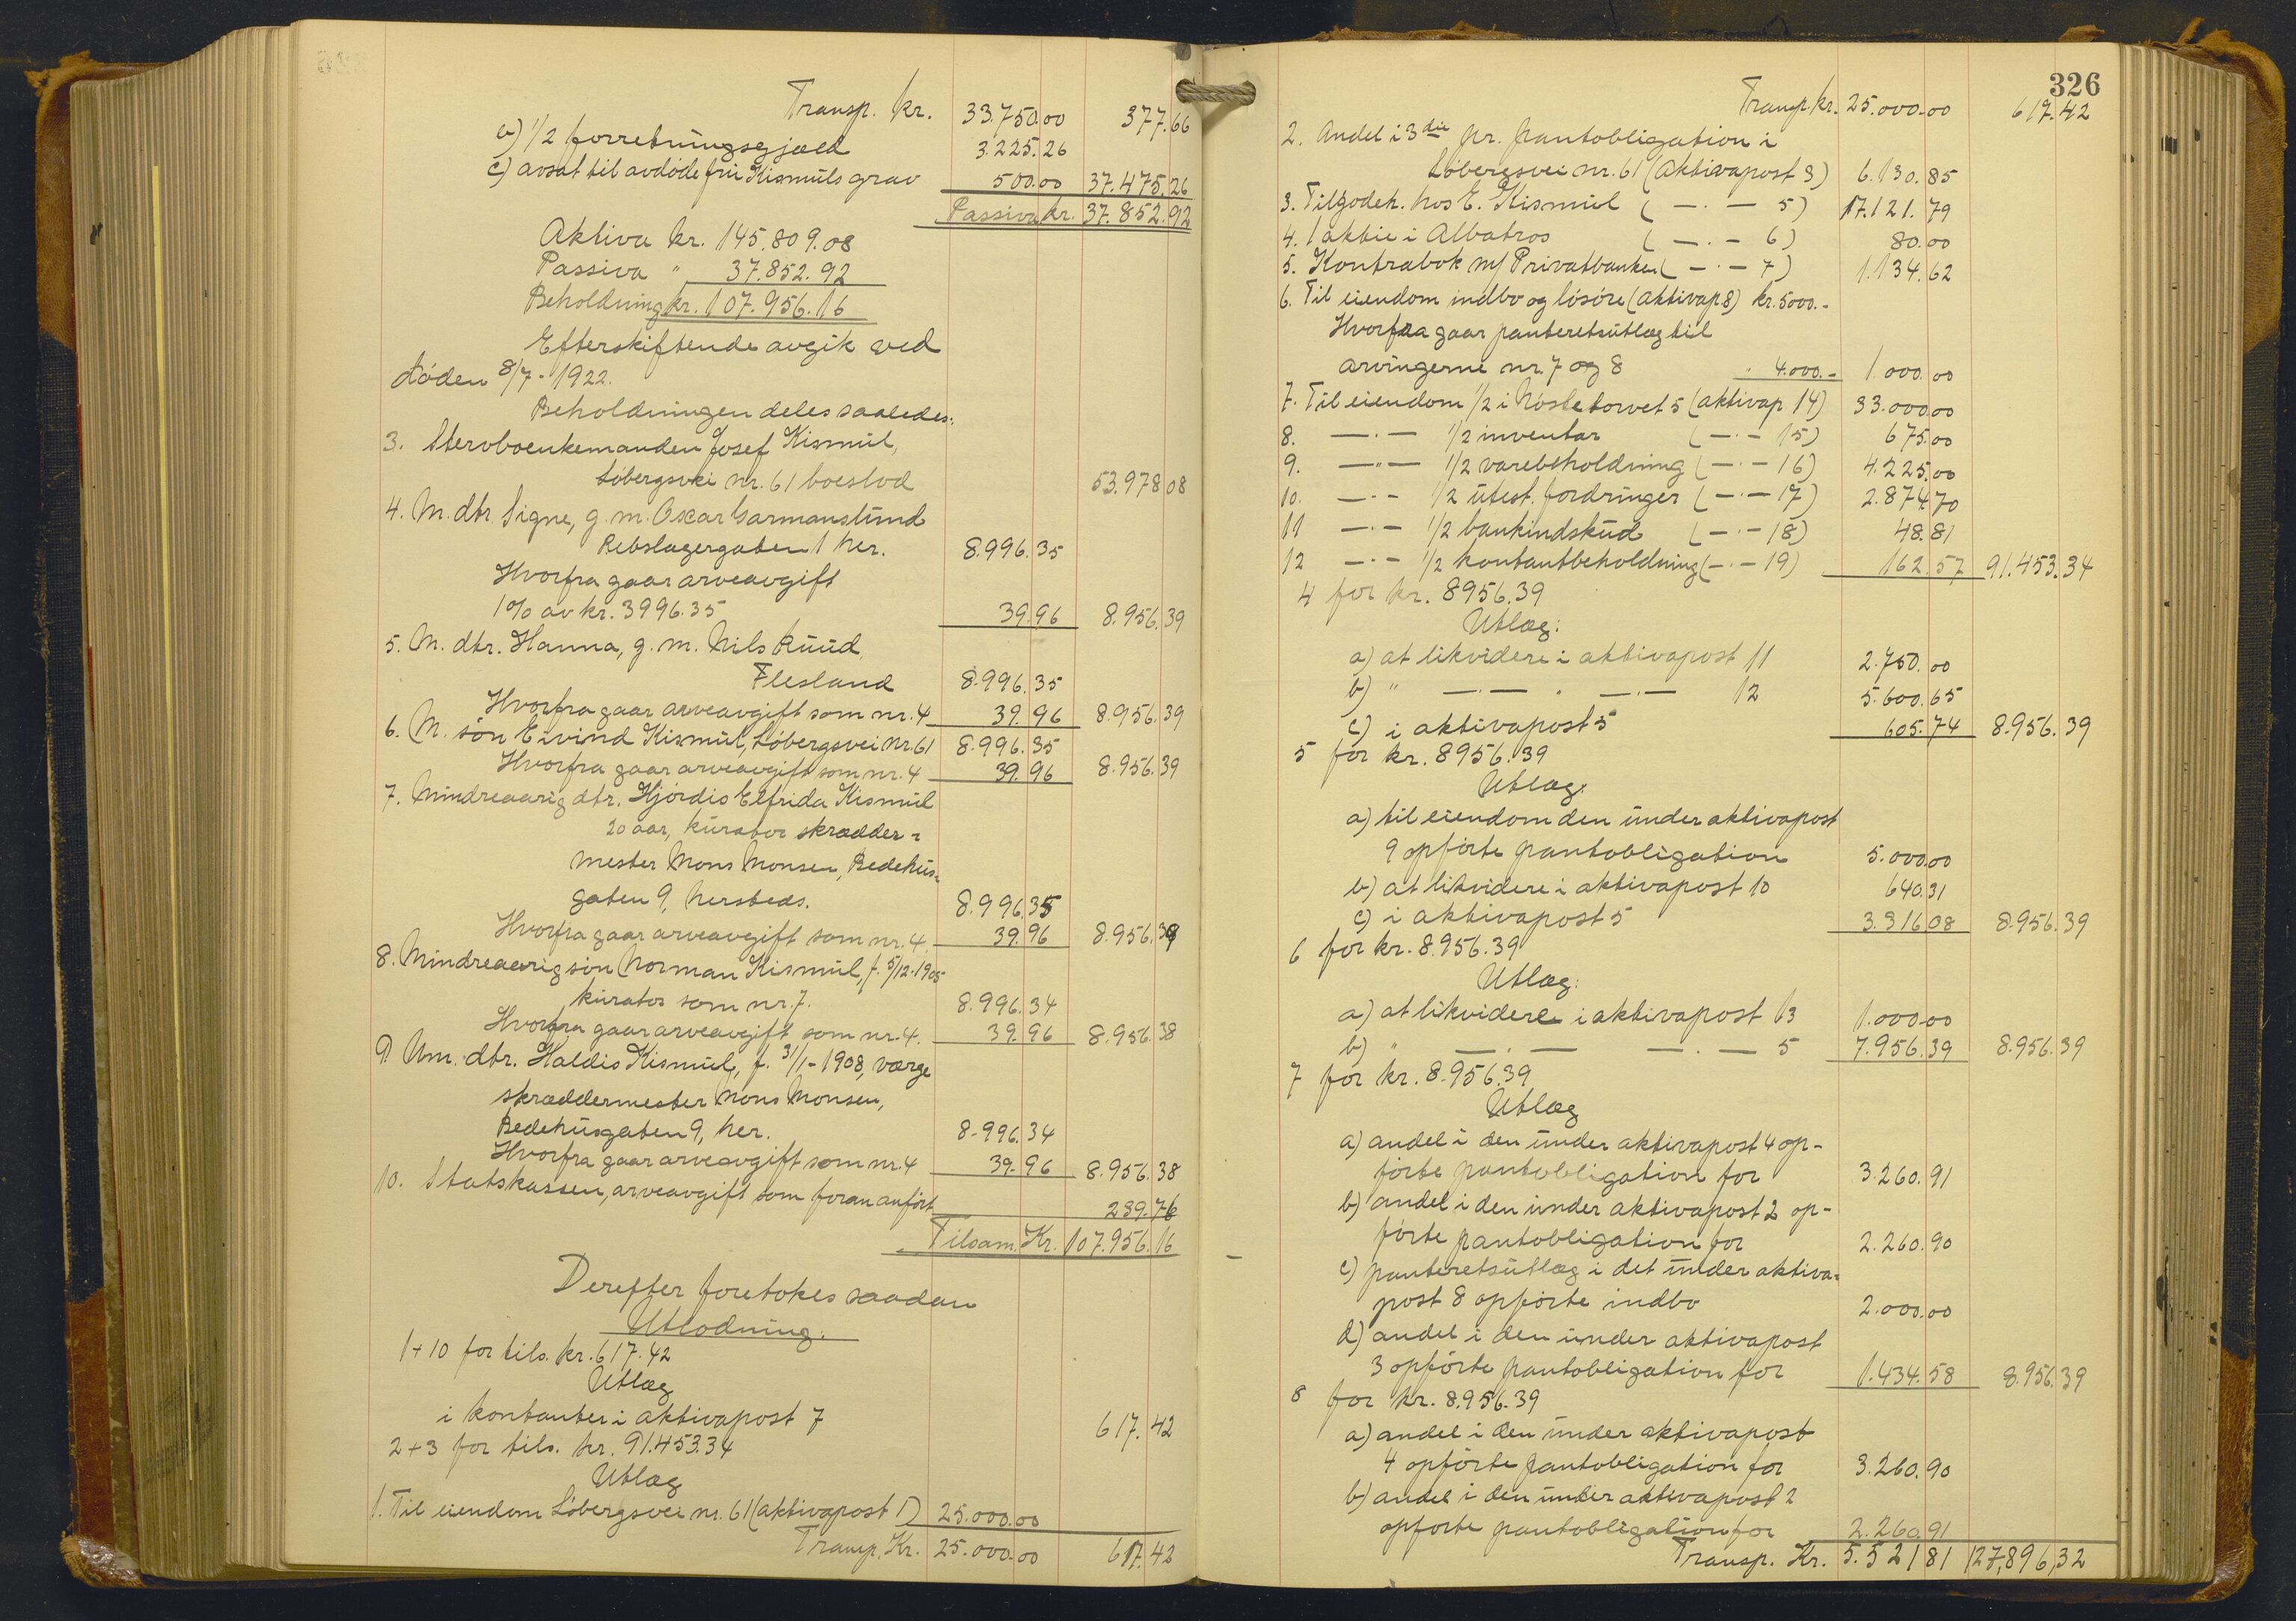 Transp. kr. 33.750.00 377.66
b) 1/2 forretningsgjæld 3.225.26
c) avsat til avdøde fru Kismuls grav 500.00 37.475.26
Passiva kr. 37.852.92
Aktiva kr. 145.809.08
Passiva " 37.852.92
Beholdning kr. 107.956.16
Efterskiftende avgik ved
døden 8/7-1922.
Beholdningen deles saaledes:
3. Stervboenkemanden Josef Kismul,
Løbergsvei nr. 61 boeslod 53.978 08
4. M. dtr. Signe, g. m. Oscar Garmanslund
Rebslagergaten 1 her. 8.996.35
Hvorfra gaar arveavgift
1% av kr. 3996.35 39.96 8.956.39
5. M. dtr. Hanna, g. m. Nils Ruud,
Flesland 8.996.35
Hvorfra gaar arveavgift som nr. 4 39.96 8.956.39
6. M. søn Eivind Kismul, Løbergsvei nr. 61 8.996.35
Hvorfra gaar arveavgift som nr. 4 39.96 8.956.39
7. Mindreaarig dtr. Hjørdis Elfrida Kismul
20 aar, kurator skrædder-
mester Mons Monsen, Bedehus-
gaten 9, hersteds. 8.996.35
Hvorfra gaar arveavgift som nr. 4. 39.96 8.956.39
8. Mindreaarig søn Norman Kismul, f. 5/12-1905
kurator som nr. 7. 8.996.34
Hvorfra gaar arveavgift som nr. 4. 39.96 8.956.38
9. Um. dtr. Haldis Kismul, f. 31/1-1908, værge
skræddermester Mons Monsen,
Bedehusgaten 9, her. 8.996.34
Hvorfra gaar arveavgift som nr. 4 39.96 8.956.38
10. Statskassen, arveavgift som foran anført 239.76
Tilsam. Kr. 107.956.16
Derefter foretokes saadan
Utlodning.
1+10 for tils. kr. 617.42
Utlæg
i kontanter i aktivapost 7 617.42
2+3 for tils. kr. 91.453.34
Utlæg
1. Til eiendom Løbergsvei nr. 61 (aktivapost 1) 25.000.00
Transp. Kr. 25.000.00 617.42
326
Transp. kr. 25.000.00 617.42
2. Andel i 3die pr. pantobligation i
Løbergsvei nr. 61 (aktivapost 3) 6.130.85
3. Tilgodeh. hos E. Kismul ( —.— 5) 17.121.79
4. 1 aktie i Albatros ( —.— 6) 80.00
5. Kontrabok m/ Privatbanken ( —.— 7) 1.134.62
6. Til eiendom indbo og løsøre (aktivap 8) kr. 5000.-
Hvorfra gaar panteretsutlæg til
arvingerne nr. 7 og 8 " 4.000.- 1.000.00
7. Til eiendom 1/2 i Nøstetorvet 5 (aktivap 14) 33.000.00
8. —.— 1/2 inventar (—.— 15) 675.00
9. —.— 1/2 varebeholdning (—.— 16) 4.225.00
10. —.— 1/2 utest. fordringer (—.— 17) 2.874.70
11 —.— 1/2 bankindskud (—.— 18) 48.81
12 —.— 1/2 kontantbeholdning (—.— 19) 162.57 91.453.34
4 for kr. 8956.39
Utlæg:
a) at likvidere i aktivapost 11 2.750.00
b) " —.— " —.— 12 5.600.65
c) i aktivapost 5 605.74 8.956.39
5 for kr. 8956.39
Utlæg:
a) til eiendom den under aktivapost
9 opførte pantobligation 5.000.00
b) at likvidere i aktivapost 10 640.31
c) i aktivapost 5 3.316.08 8.956.39
6 for kr. 8.956.39
Utlæg:
a) at likvidere i aktivapost 13 1.000.00
b) " —.— —.— 5 7.956.39 8.956.39
7 for kr. 8.956.39
Utlæg
a) andel i den under aktivapost 4 op-
førte pantobligation for 3.260.91
b) andel i den under aktivapost 2 op-
førte pantobligation for 2.260.90
c) panteretsutlæg i det under aktiva-
post 8 opførte indbo 2.000.00
d) andel i den under aktivapost
3 opførte pantobligation for 1.434.58 8.956.39
8 for kr. 8.956.39
a) andel i den under aktivapost
4 opførte pantobligation for 3.260.90
b) andel i den under aktivapost 2
opførte pantobligation for 2.260.91
Transp. Kr. 5.521 81 127,896,32